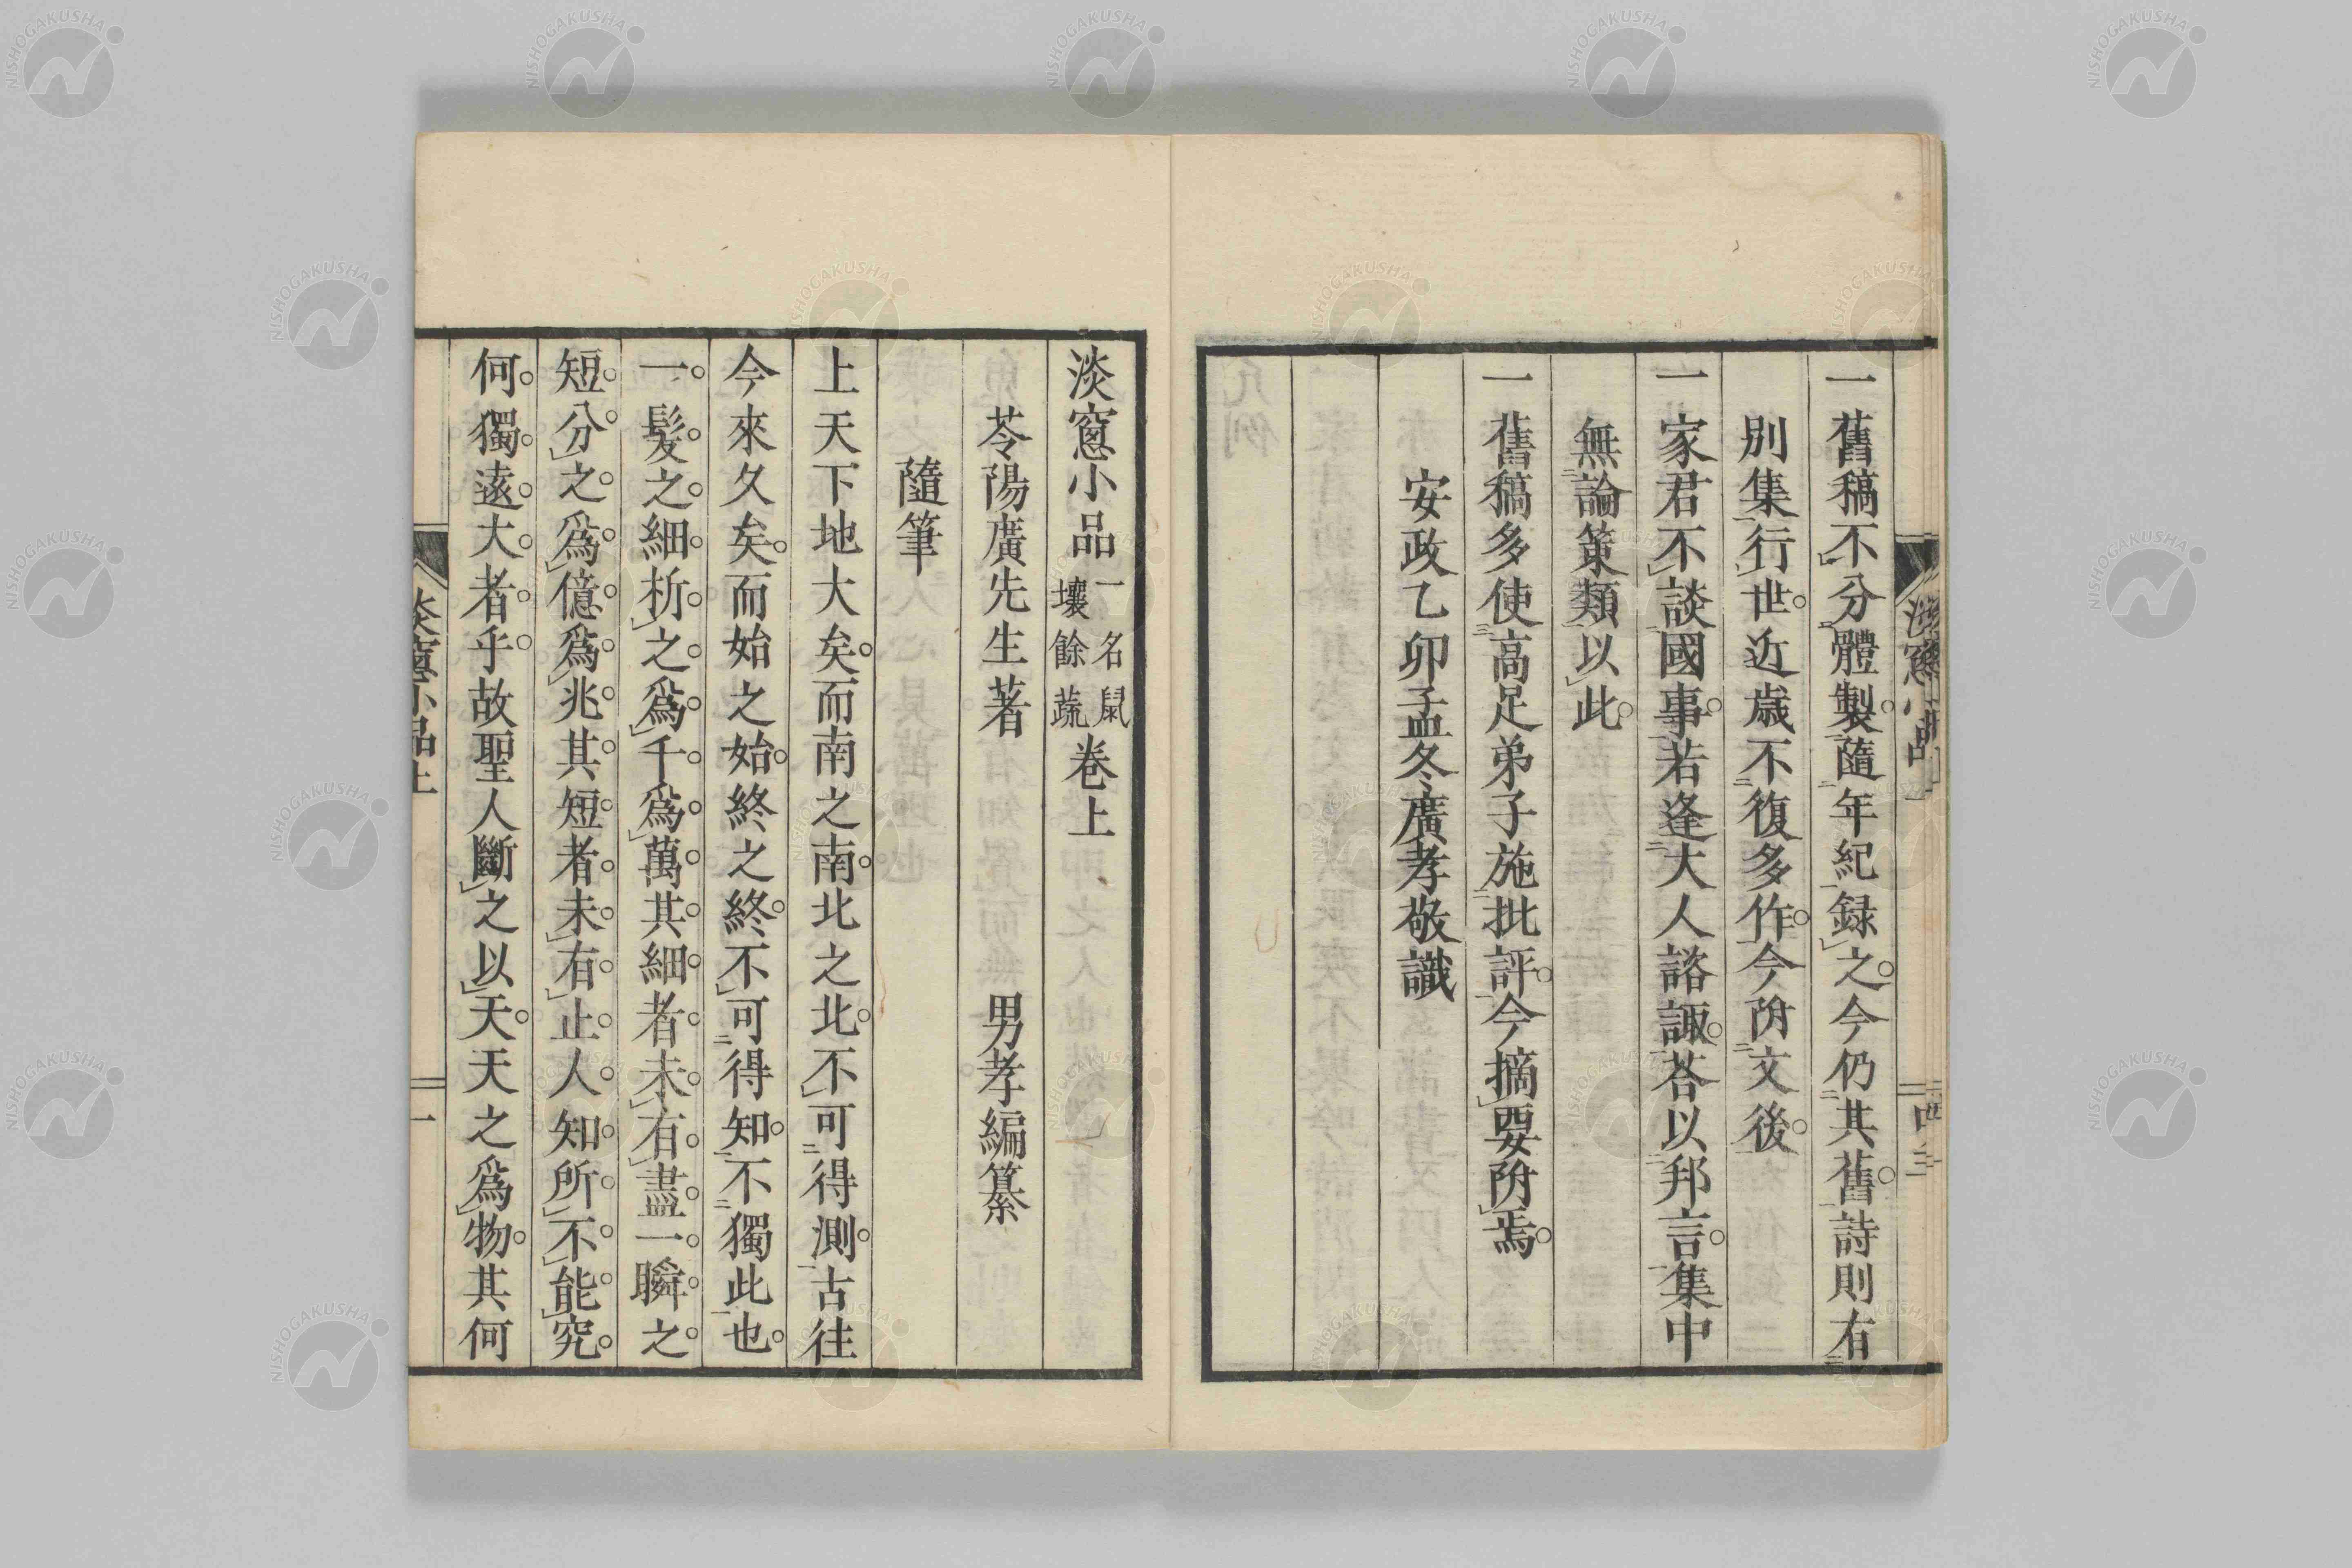 一舊稿不分體製。隨年紀録之。今仍其舊。詩則有
別集行世。近歲不復多作。今附文後。
一家君不談國事。若逢大人諮諏。荅以邦言。集中
無論策類以此。
一舊稿多使高足弟子施批評。今摘要附焉。
安政乙卯孟冬廣孝敬識
淡窻小品一名鼠壤餘蔬卷上
苓陽廣先生著 男孝編纂
隨筆
上天下地大矣。而南之南。北之北。不可得測。古往
今來久矣。而始之始。終之終。不可得知。不獨此也。
一髮之細析之爲千爲萬其細者未有盡一瞬之
短分之爲億爲兆其短者未有止人知所不能究
何獨遠大者乎故聖人斷之以天。天之爲物。其何
淡窻小品上
一
NISHOGAKUSHA